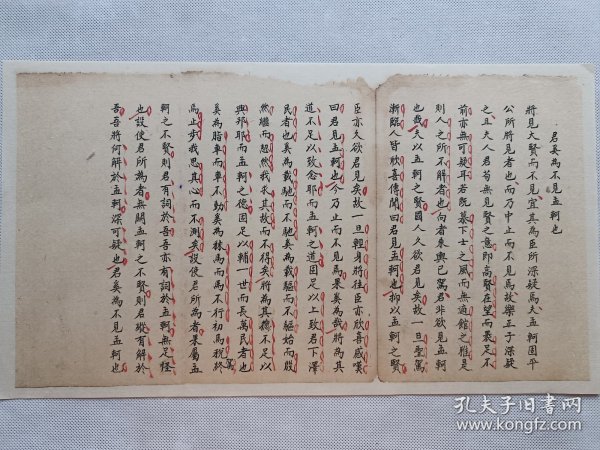 君奚為不見孟軻也
將見大賢而不見宜其為臣所深疑焉夫孟軻固平
公所將見者也而乃中止而不見焉故樂正子深疑
之且夫人君苟無見賢之意即高賢在望而裹足不
前亦無可疑耳若既慕下士之風而無適館之雅是
則人之所不解者也向者乘輿已駕君非欲見孟軻
也哉夫以孟軻之賢國人久欲君見矣故一旦聖駕
漸臨人皆欣喜傳聞曰君見孟軻也抑以孟軻之賢
臣亦久欲君見矣故一旦輕身將往臣亦欣喜感嘆
曰君見孟軻也今乃止而不見焉果奚為哉將為其
道不足以致念耶而孟軻之道固足以上致君下澤
民者也奚為載馳而不馳奚為載驅而不驅始而殷
然繼而超然我求其故而不得矣將為其德不足以
興邦耶而孟軻之德固足以輔一世而長萬民者也
奚為脂車而車不動奚為秣馬而馬不行初焉稅駕終
焉止步我思其心而不測矣設使君所為者果屬孟
軻之不賢則君有詞於吾吾亦有詞於孟軻無足怪
也設使君所為者無關孟軻之不賢則君縱有解於
吾吾將何解於孟軻深可疑也君奚為不見孟軻也
孔夫子旧書网
www.kongfz.com